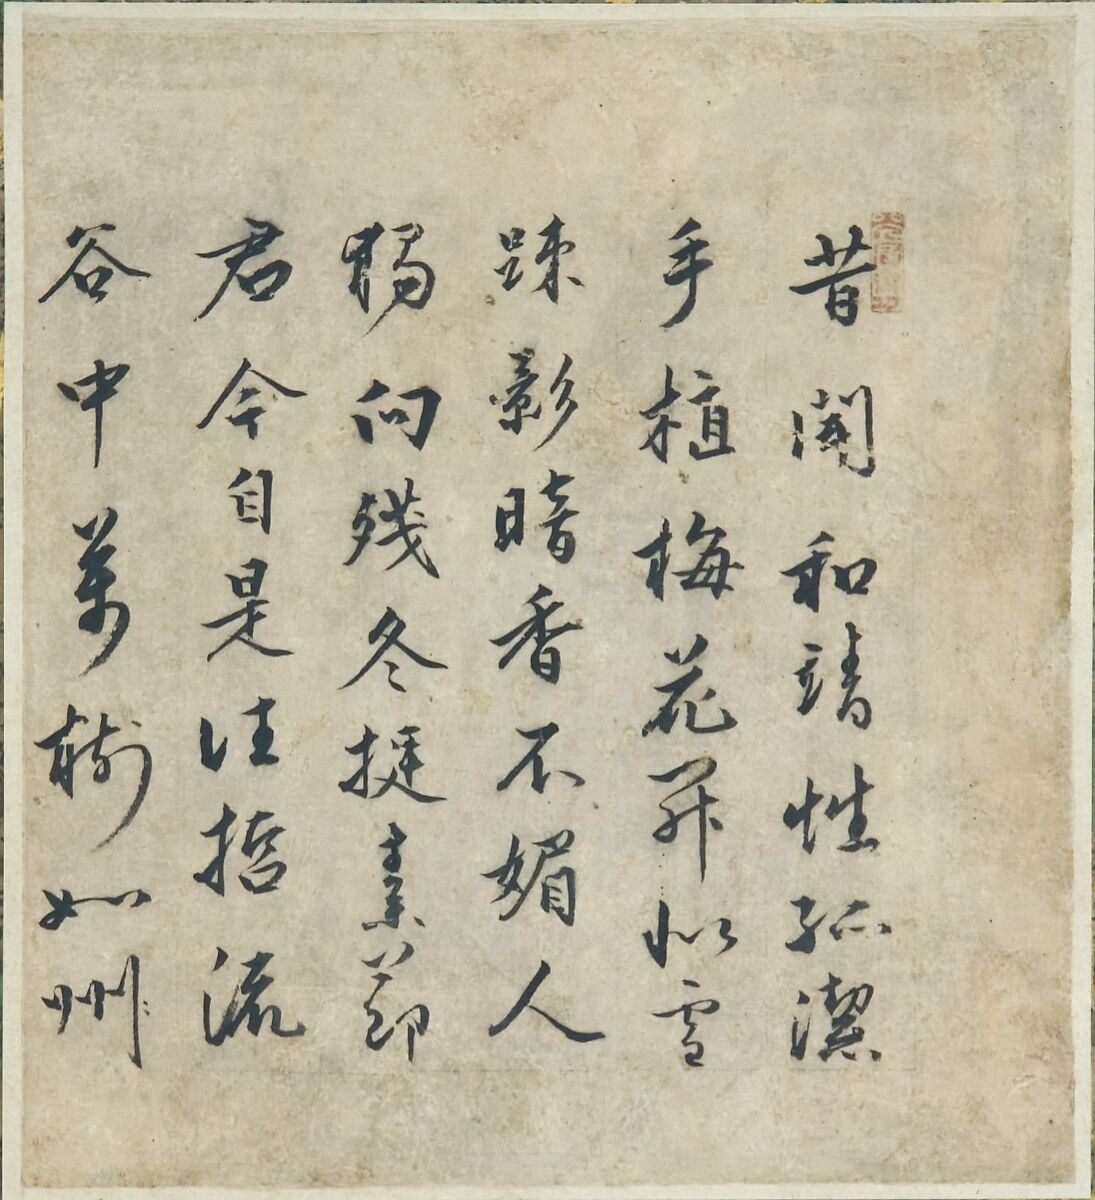 昔聞和靖性孤潔
手植梅花開似雪
踈影暗香不媚人
獨向殘冬挺素節
君今自是法哲流
谷中萬樹如州